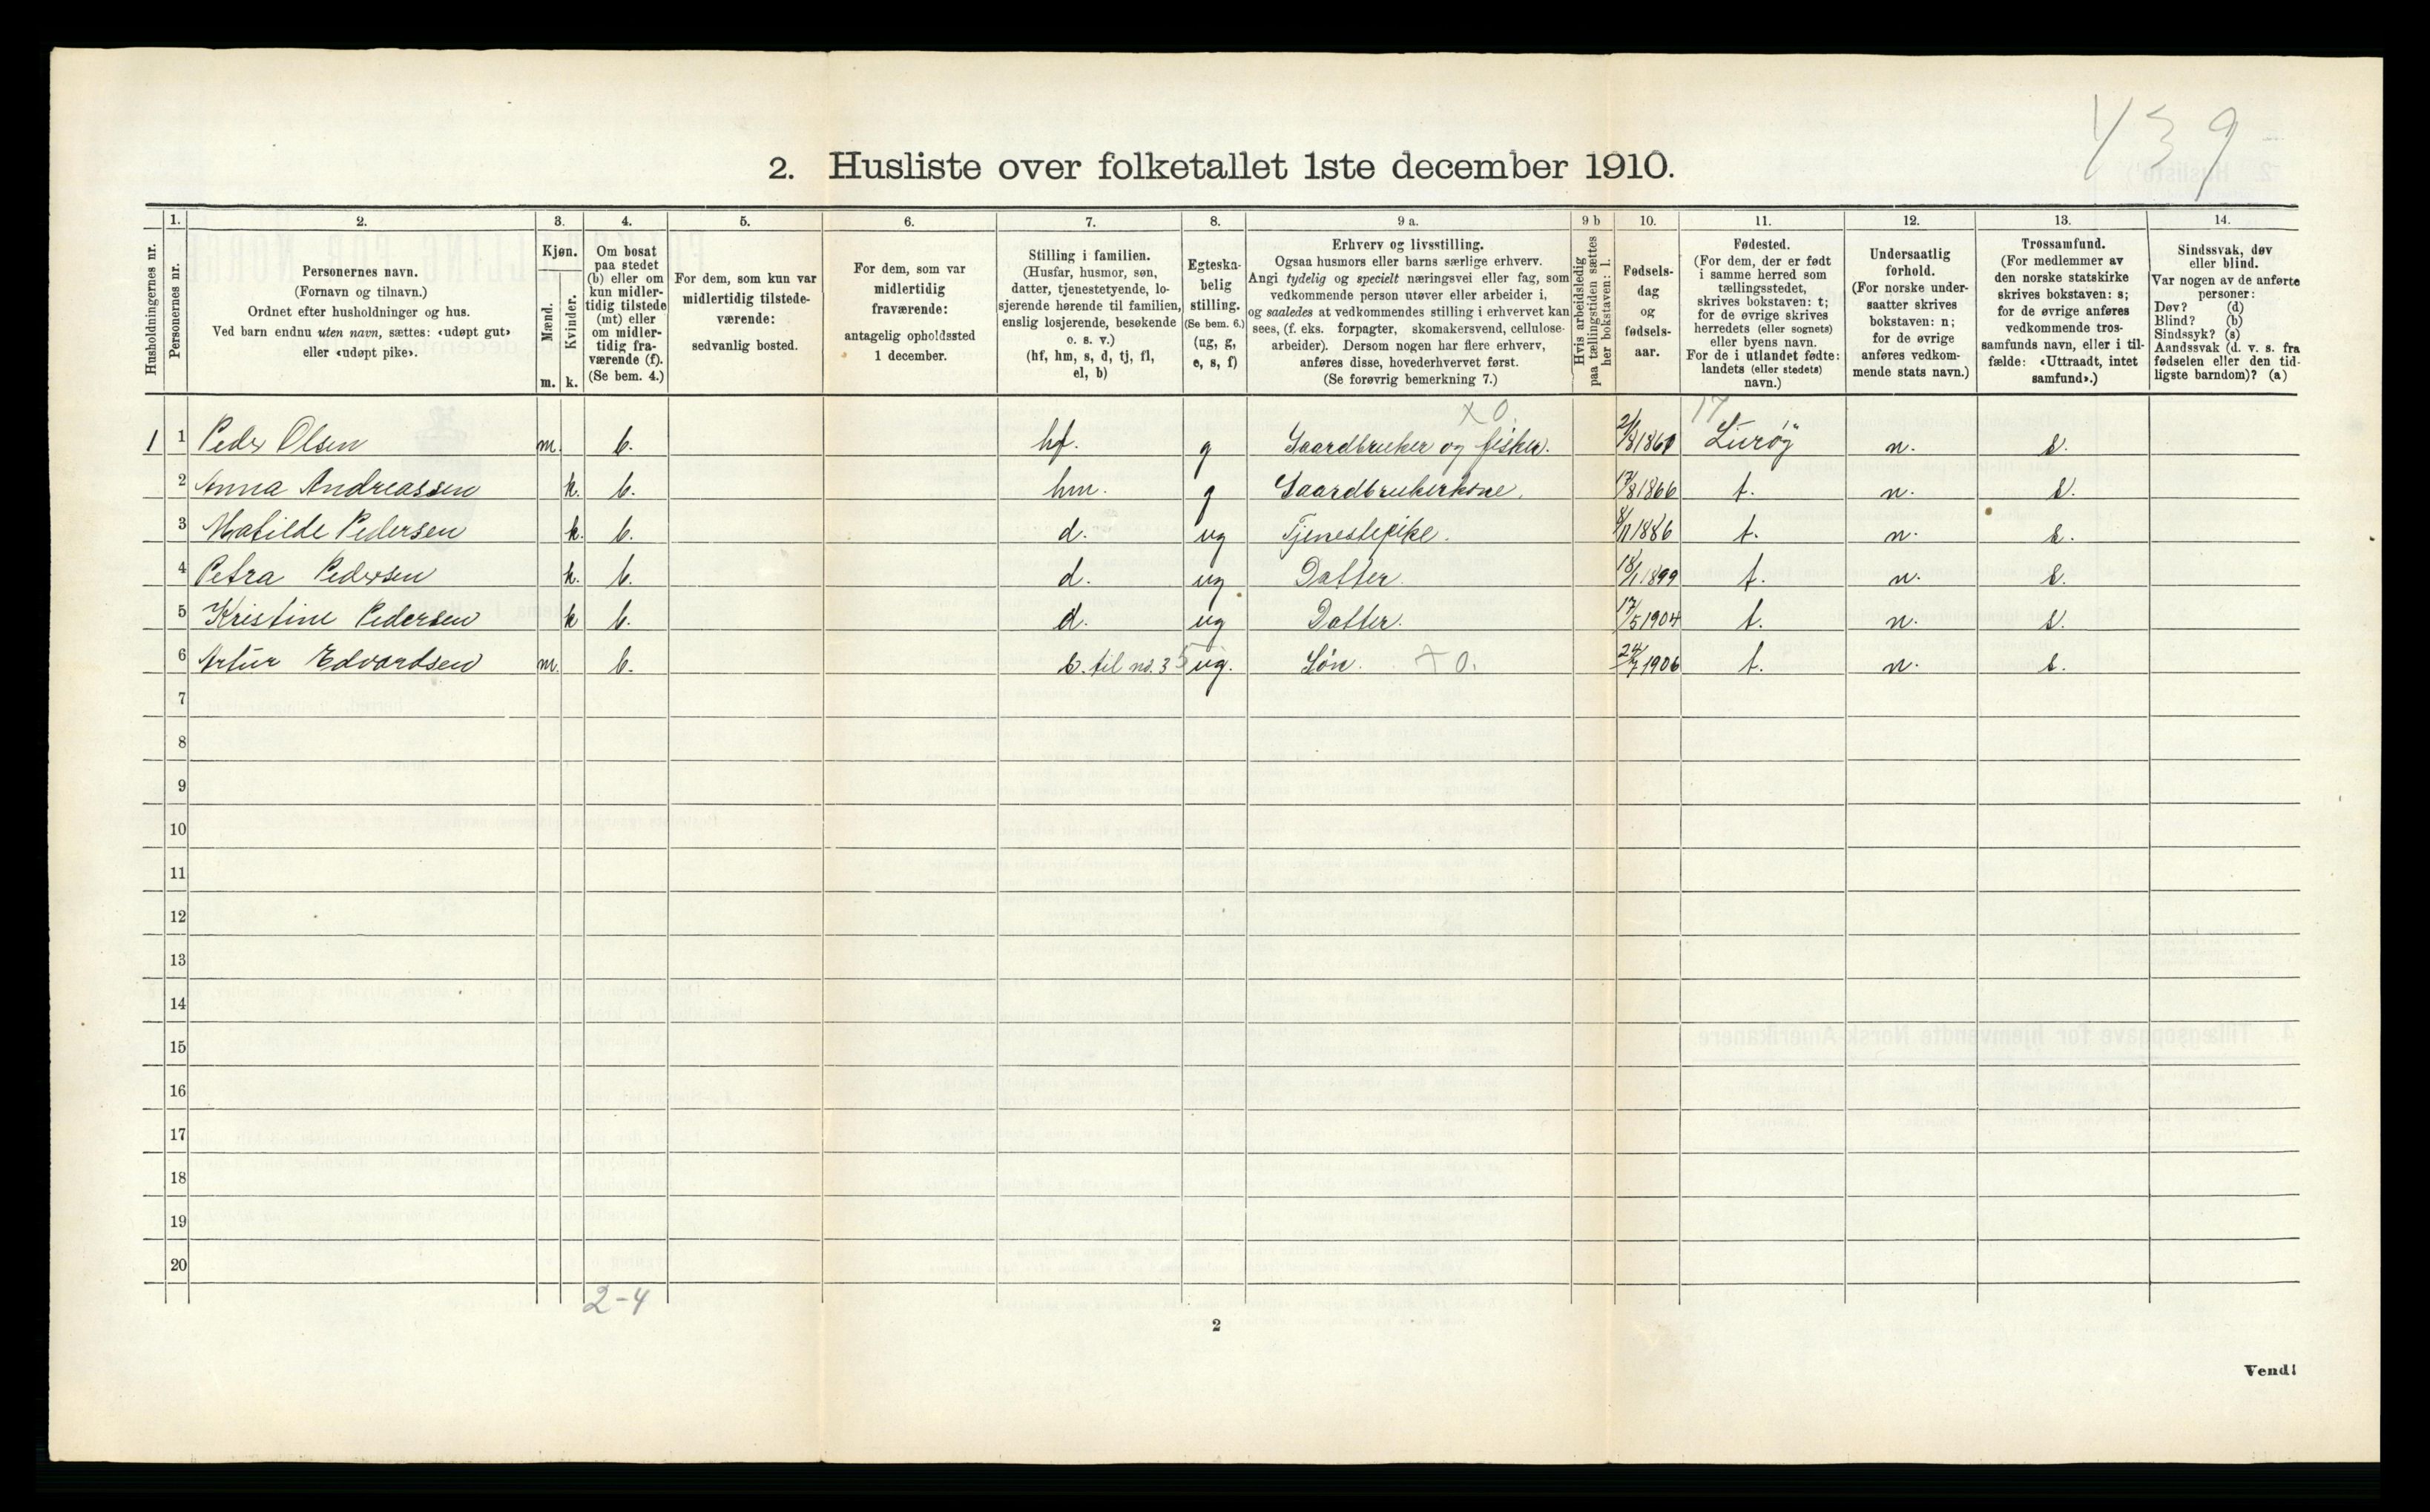 V 3 9
2. Husliste over folketallet 1ste december 1910.
1. 2. 3. 4. 5. 6. 7. 8. 9 a. 9 b 10. 11. 12. 13. 14.
Husholdningernes nr.
Personernes nr.
Personernes navn.
(Fornavn og tilnavn.)
Ordnet efter husholdninger og hus.
Ved barn endnu uten navn, sættes: «udøpt gut»
eller «udøpt pike».
Kjøn.
Mænd.
Kvinder.
m. k.
Om bosat
paa stedet
(b) eller om
kun midler-
tidig tilstede
(mt) eller
om midler-
tidig fra-
værende (f).
(Se bem. 4.)
For dem, som kun var
midlertidig tilstede-
værende:
sedvanlig bosted.
For dem, som var
midlertidig
fraværende:
antagelig opholdssted
1 december.
Stilling i familien.
(Husfar, husmor, søn,
datter, tjenestetyende, lo-
sjerende hørende til familien,
enslig losjerende, besøkende
o. s. v.)
(hf, hm, s, d, tj, fl,
el, b)
Egteska-
belig
stilling.
(Se bem. 6.)
(ug, g,
e, s, f)
Erhverv og livsstilling.
Ogsaa husmors eller barns særlige erhverv.
Angi tydelig og specielt næringsvei eller fag, som
vedkommende person utøver eller arbeider i,
og saaledes at vedkommendes stilling i erhvervet kan
sees, (f. eks. forpagter, skomakersvend, cellulose-
arbeider). Dersom nogen har flere erhverv,
anføres disse, hovederhvervet først.
(Se forøvrig bemerkning 7.)
Hvis arbeidsledig
paa tællingstiden sættes
her bokstaven: l.
Fødsels-
dag
og
fødsels-
aar.
Fødested.
(For dem, der er født
i samme herred som
tællingsstedet,
skrives bokstaven: t;
for de øvrige skrives
herredets (eller sognets)
eller byens navn.
For de i utlandet fødte:
landets (eller stedets)
navn.)
Undersaatlig
forhold.
(For norske under-
saatter skrives
bokstaven: n;
for de øvrige
anføres vedkom-
mende stats navn.)
Trossamfund.
(For medlemmer av
den norske statskirke
skrives bokstaven: s;
for de øvrige anføres
vedkommende tros-
samfunds navn, eller i til-
fælde: «Uttraadt, intet
samfund».)
Sindssvak, døv
eller blind.
Var nogen av de anførte
personer:
Døv? (d)
Blind? (b)
Sindssyk? (s)
Aandssvak (d. v. s. fra
fødselen eller den tid-
ligste barndom)? (a)
x 0. 17
1 1 Peder Olsen m. b. hf. g Gaardbruker og fisker. 2/8 1861 Lurøy n. s.
2 Anna Andreassen k. b. hm. g Gaardbrukerkone. 17/8 1866 t. n. s.
3 Matilde Pedersen k. b. d. ug Tjenestepike. 8/11 1886 t. n. s.
4 Petra Pedersen k. b. d. ug Datter. 18/1 1899 t. n. s.
5 Kristine Pedersen k b. d. ug Datter. 17/5 1904 t. n. s.
6 Artur Edvardsen m. b. b. til no. 3 5 ug. Søn. x 0. 24/7 1906 t. n. s.
7
8
9
10
11
12
13
14
15
16
17
18
19
20
2-4
2
Vend!